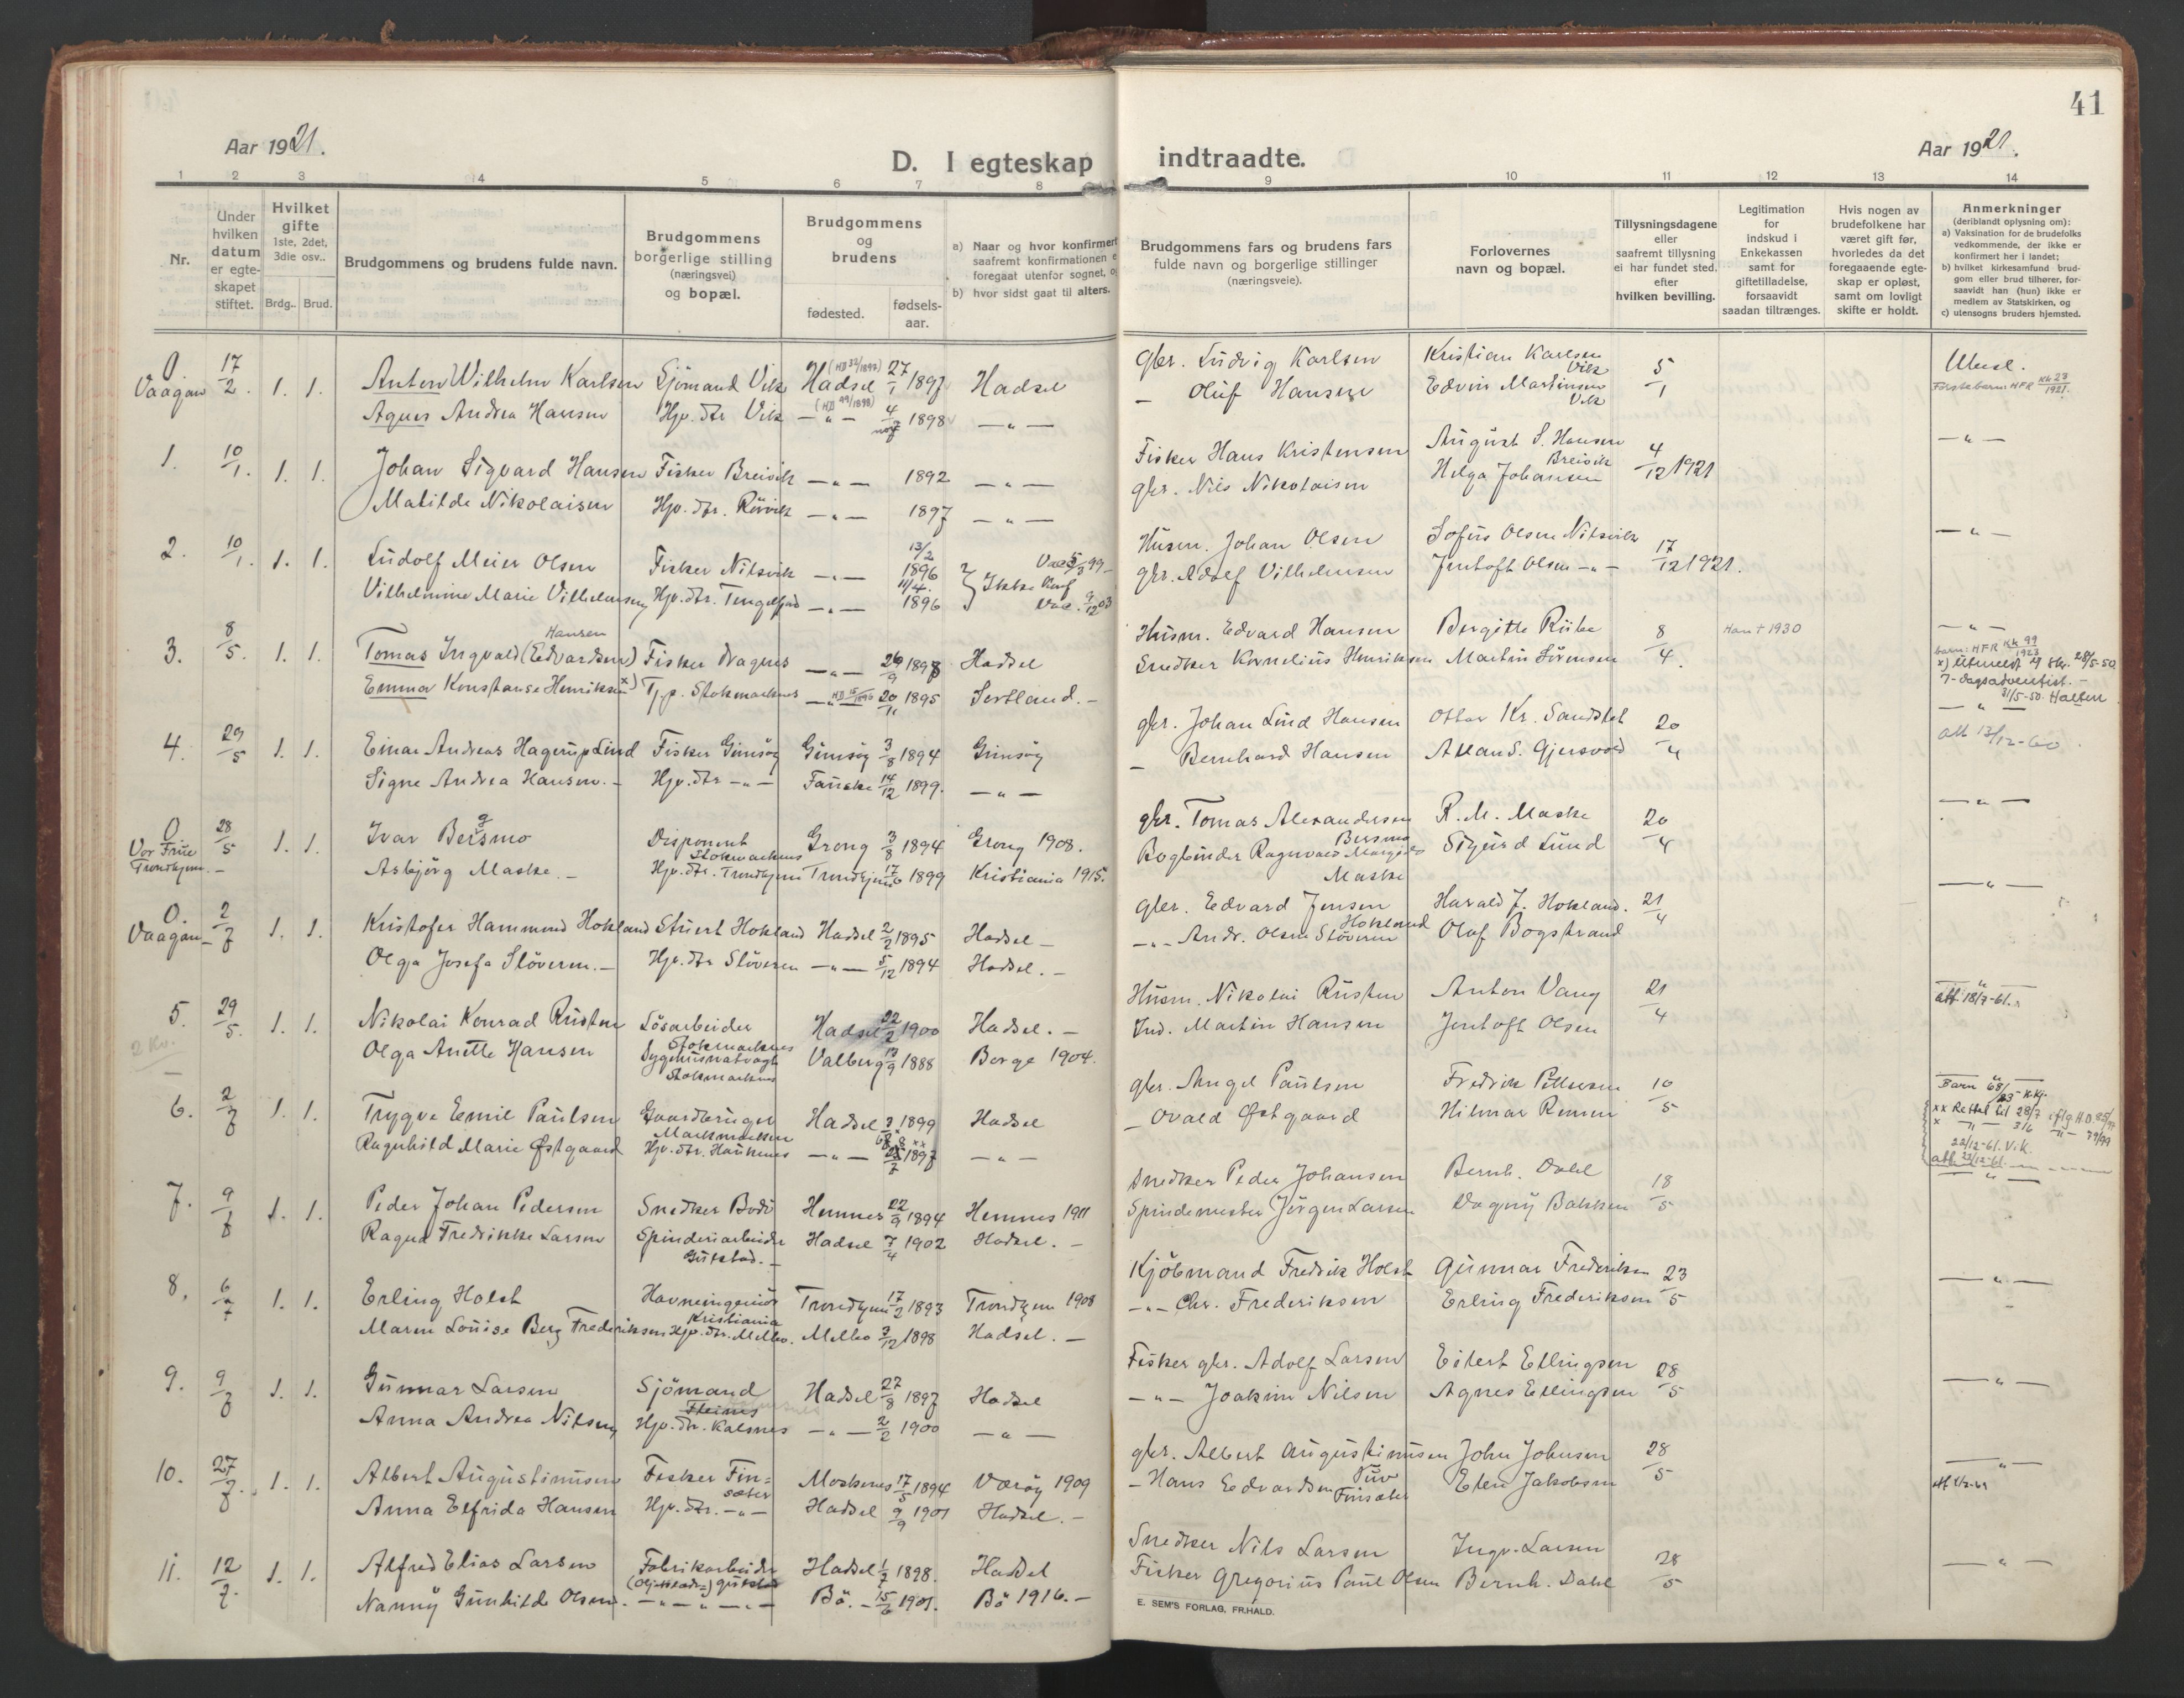 41
Aar 1921.
D. I egteskap indtraadte.
Aar 1921.
1 2 3 4 5 6 7 8 9 10 11 12 13 14
Nr.
Under hvilken datum er egte- skapet stiftet.
Hvilket gifte 1ste, 2det, 3die osv..
Brdg.. Brud.
Brudgommens og brudens fulde navn.
Brudgommens borgerlige stilling (næringsvei) og bopæl.
Brudgommens og brudens
fødested. fødsels- aar.
a) Naar og hvor konfirmert
saafremt konfirmationen e
foregaat utenfor sognet, o
b) hvor sidst gaat til alters.
Brudgommens fars og brudens fars
fulde navn og borgerlige stillinger
(næringsveie).
Forlovernes
navn og bopæl.
Tillysningsdagene
eller
saafremt tillysning
ei har fundet sted.
efter
hvilken bevilling.
Legitimation
for
indskud i
Enkekassen
samt for
giftetilladelse,
forsaavidt
saadan tiltrænges.
Hvis nogen av
brudefolkene har
været gift før,
hvorledes da det
foregaaende egte-
skap er opløst,
samt om lovligt
skifte er holdt.
Anmerkninger
(deriblandt oplysning om):
a) Vaksination for de brudefolks
vedkommende, der ikke er
konfirmert her i landet;
b) hvilket kirkesamfund brud-
gom eller brud tilhører, for-
saavidt han (hun) ikke er
medlem av Statskirken, og
c) utensogns bruders hjemsted.
0. Vaagan 17/2. 1. 1. Anton Wilhelm Karlsen Sjömand Vik Hadsel 27/1 1897 Hadsel gbr. Ludvig Karlsen Kristian Karlsen Vik 5/1
Agnes Andrea Hansen Hjv. dtr Vik — " — 1898 — " — — Oluf Hansen Edvin Martinsen Vik
1. 10/1. 1. 1. Johan Sigvard Hansen Fisker Breivik — " — 1892 — " — Fisker Hans Kristensen August S. Hansen Breivik 4/12 1921 — " —
Matilde Nikolaisen Hjv. dtr. Rörvik — " — 1897 — " — gbr. Nils Nikolaisen Helga Johansen
2. 10/1. 1. 1. Ludolf Meier Olsen Fisker Nilsvik — " — 13/2 1896 Ikke Konf Husm. Johan Olsen Sofus Olsen Nilsvik 17/12 1921. — " —
Vilhelmine Marie Vilhelmsen Hjv. dtr. — " — 11/4. 1896 gbr. Adolf Vilhelmsen Jentoft Olsen — " —
3. 8/5. 1. 1. Tomas Ingvald (Edvardsen) Hansen Fisker Dragnes — " — 1898 Hadsel Husm. Edvard Hansen Birgitte Riibe 8/4. Han + 1930 — " —
Emma Konstanse Henriksen x) Tjp. Stokmarknes — " — 20/11 1895 Sortland. — Snedker Kornelius Henriksen Martin Sörensen
x) Utmeldt 28/5-50
7-dagsadventist. —
4. 29/5 1. 1. Einar Andreas Hagerup Lind Fisker Gimsöy Gimsöy 3/8 1894 Gimsöy gbr. Johan Lind Hansen Ottar Kr. Sandslet 20/4 — " —
Signe Andrea Hansen. — Hjv. dtr — " — Fauske 14/12 1899. — " — — Bernhard Hansen Allan S. Gjersvold
att 13/12-60
0 Vor Frue Trondhjem. — 28/5 1. 1. Ivar Bersmo Disponent Stokmarknes Grong 3/8 1894 Grong 1908. gbr. Tomas Alexandersen Bersmo R. M. Maske 20/4 — " —
Asbjörg Maske. — Hjv. dtr. Trondhjem Trondhjem 1899 Kristiania 1915. Bogbinder Ragnvald Maske Sigurd Lund
0. Vaagan — 2/7 1. 1. Kristofer Hammond Hokland Stuert Hokland Hadsel 2/2 1895 Hadsel — gbr. Edvard Jensen Hokland Harald J. Hokland. 21/4 — " —
Olga Josefa Slöveren. — Hjv. dtr Slöveren — " — 5/12 1894 Hadsel. — — " — Andr. Olsen Slöveren Olaf Bogstrand
5. 29/5. 1. 1. Nikolai Konrad Risten Lösarbeider Stokmarknes Hadsel 22/2 1900 Hadsel. — Husm. Nikolai Risten Anton Vang 21/4 — " —
Olga Anette Hansen Stokmarknes Valberg 13/9 1888 Borge 1904. Ind. Martin Hansen Jentoft Olsen
att. 18/7-61.
6. 2/7 1. 1. Trygve Emil Paulsen Gaardbruger Hadsel 1899 Hadsel gbr. Angel Paulsen Fredrik Pettersen 10/5
Ragnhild Marie Østgaard Hjv. dtr. Hauknes — " — 1897 — " — — Ovald Østgaard Hilmar Rinnen
7. 9/7 1. 1. Peder Johan Pedersen Snedker Bodö Hemnes 22/9 1894 Hemnes 1911 Snedker Peder Johansen Bernh. Dahl 18/5 — " —
Ragna Fredrikke Larsen Spinderiarbeider Gulstad. — Hadsel 7/4 1902 Hadsel. — Spindemester Jörgen Larsen Dagny Bakken
8. 6/7 1. 1. Erling Holst Havneingeniör Kristiania Trondhjem 17/2 1893 Trondhjem 1908 Kjöbmand Fredrik Holst Gunnar Frederiksen 23/5 — " —
Maren Louise Berg Frederiksen Hjv. dtr. Melbo. Melbo 3/12 1898 Hadsel. — — " — Chr. Frederiksen Erling Frederiksen
9. 9/7 1. 1. Gunnar Larsen Sjömand Fleines Hadsel 27/8 1897 Hadsel Fisker gbr. Adolf Larsen Eilert Ellingsen 28/5 — " —
Anna Andrea Nilsen Hjv. dtr. Kalsnes — " — 2/2 1900 — " — — " — Joakim Nilsen Agnes Ellingsen
10. 27/7. 1. 1. Albert Augustinusen Fisker Fin= sæter Moskenes 17/5 1894 Værøy 1909 gbr. Albert Augustinusen John Johnsen 28/5 — " —
Anna Elfrida Hansen Hjv. dtr. — " — Hadsel 9/9 1901 Hadsel. — — Hans Edvardsen Finsæter Elen Jakobsen
11. 12/7. 1. 1. Alfred Elias Larsen Fabrikarbeider Hadsel 1/7 1898. Hadsel Snedker Nils Larsen Ingv. Larsen 28/5 — " —
Nanny Gunhilde Olsen. — " — " — " — Bö. — 15/6 1901. Bö 1916. — Fisker Gregorius Paul Olsen Bernh. Dahl
E. SEM'S FORLAG, FR.HALD.